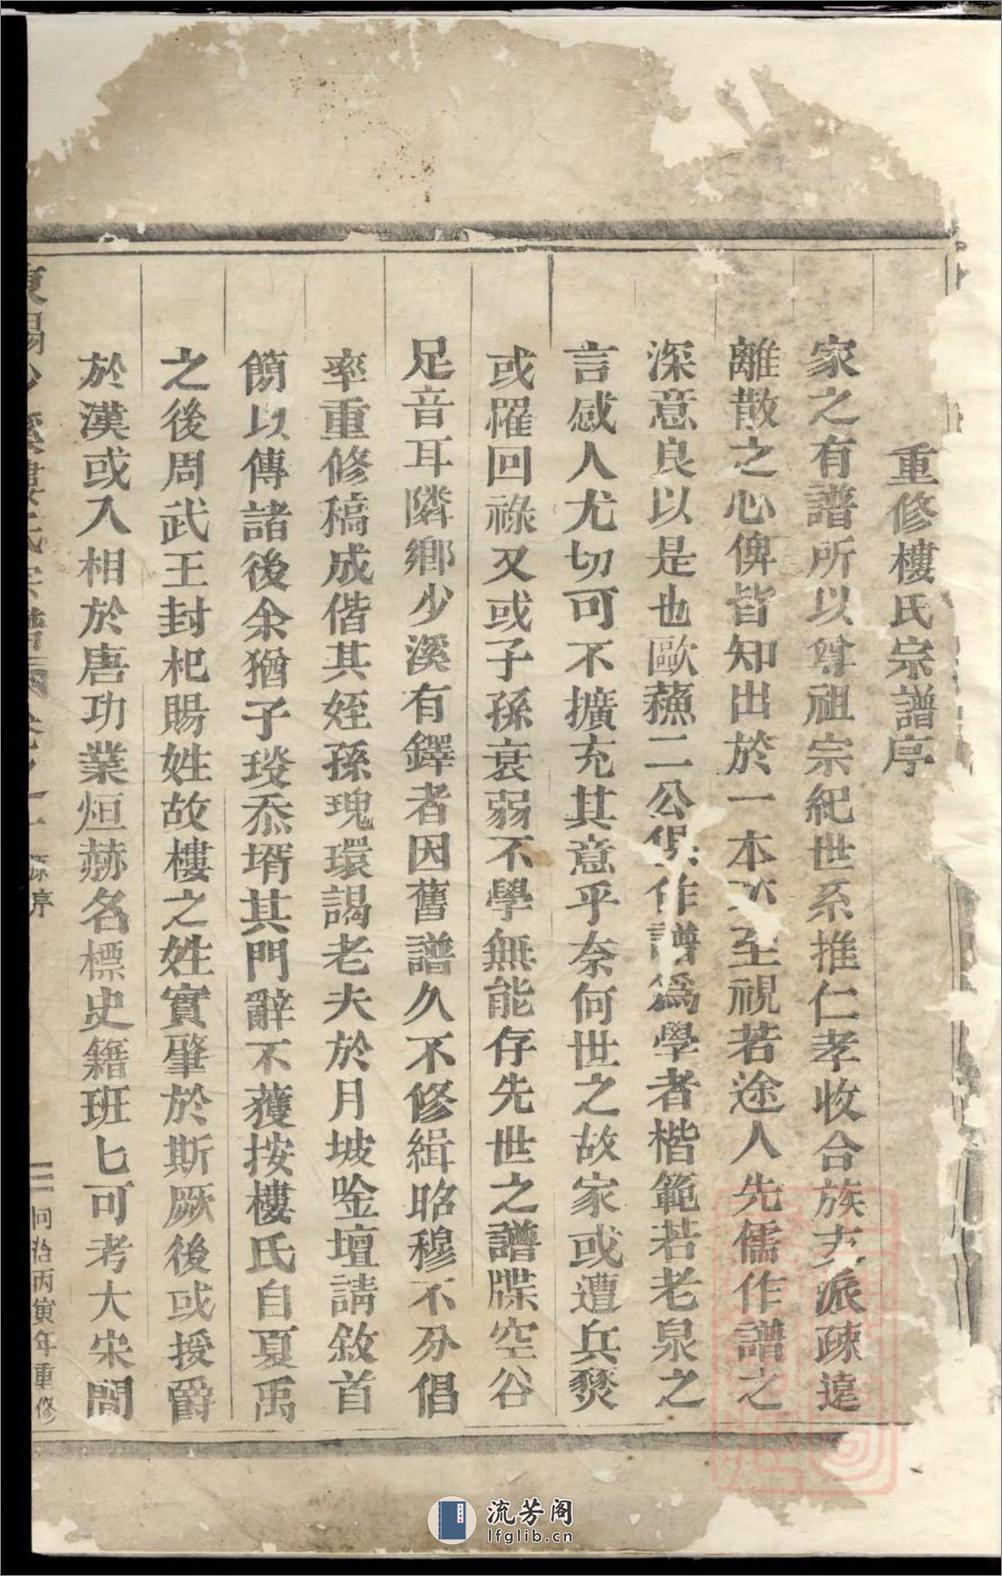 重修樓氏宗譜序
家之有譜所以尊祖宗紀世系推仁孝收合族支派疎遠
離散之心俾皆知出於一本不至視若途人先儒作譜之
深意良以是也歐蘓二公俱作譜爲學者楷範若老泉之
言感人尤切可不擴充其意乎奈何世之故家或遭兵燹
或罹回祿又或子孫衰弱不學無能存先世之譜牒空谷
足音耳隣鄉少溪有鐸者因舊譜久不修緝昭穆不分倡
率重修稿成偕其姪孫瑰環謁老夫於月坡唫壇請敘首
簡以傳諸後余猶子琰忝壻其門辭不獲按樓氏自夏禹
之後周武王封杞賜姓故樓之姓實肇於斯厥後或授爵
於漢或入相於唐功業烜赫名標史籍班匕可考大宋間
東陽少溪樓氏宗譜 卷之一 原序 三 同治丙寅年重修
流芳阁
lfglib.cn